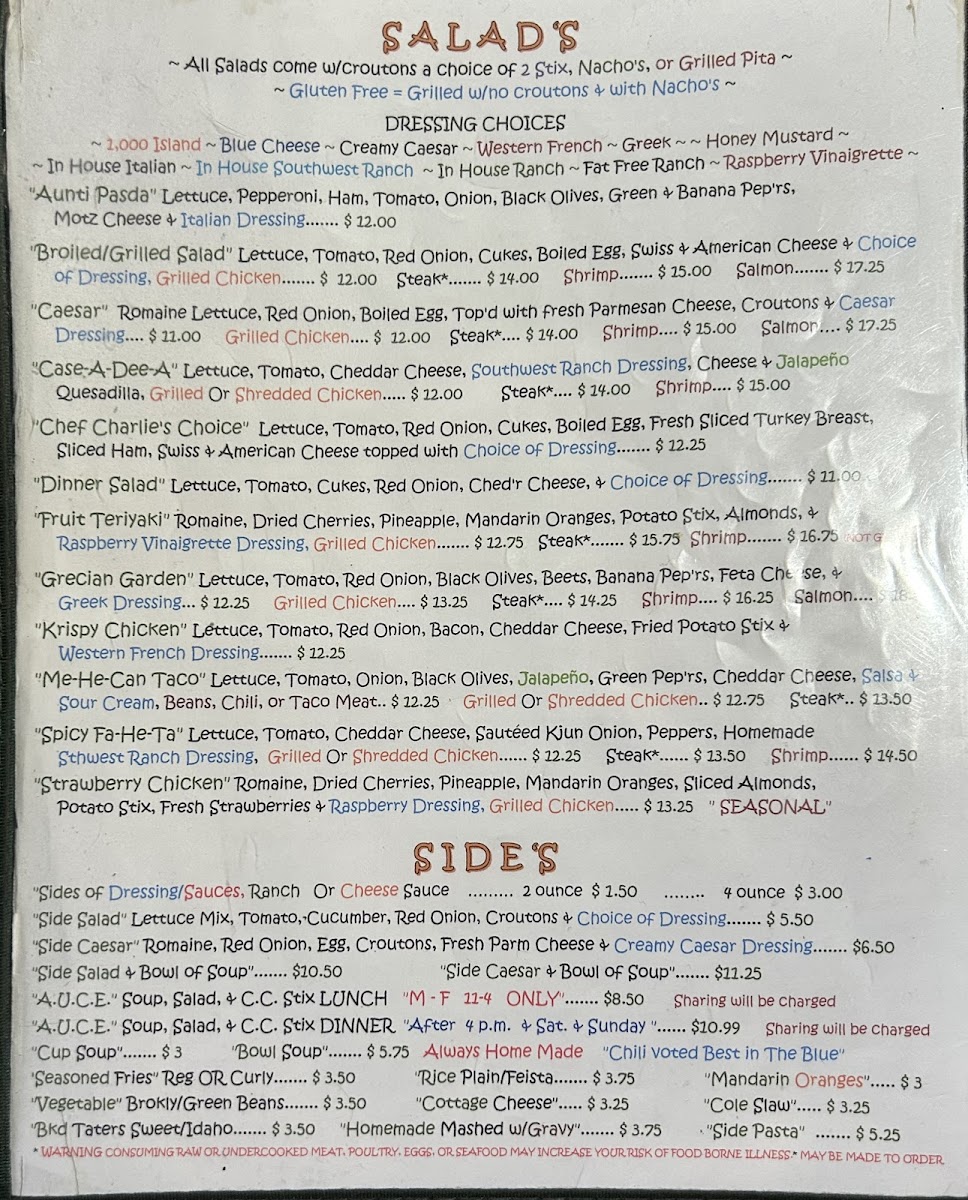 SALAD'S
~ All Salads come w/croutons a choice of 2 Stix, Nacho's, or Grilled Pita ~
~ Gluten Free = Grilled w/no croutons & with Nacho's ~
DRESSING CHOICES
~ 1,000 Island ~ Blue Cheese ~ Creamy Caesar ~ Western French ~ Greek ~ ~ Honey Mustard ~
~ In House Italian ~ In House Southwest Ranch ~ In House Ranch ~ Fat Free Ranch ~ Raspberry Vinaigrette ~
"Aunti Pasda" Lettuce, Pepperoni, Ham, Tomato, Onion, Black Olives, Green & Banana Pep'rs,
Motz Cheese & Italian Dressing....... $ 12.00
"Broiled/Grilled Salad" Lettuce, Tomato, Red Onion, Cukes, Boiled Egg, Swiss & American Cheese & Choice
of Dressing, Grilled Chicken....... $ 12.00 Steak*....... $ 14.00 Shrimp....... $ 15.00 Salmon....... $ 17.25
"Caesar" Romaine Lettuce, Red Onion, Boiled Egg, Top'd with fresh Parmesan Cheese, Croutons & Caesar
Dressing.... $ 11.00 Grilled Chicken.... $ 12.00 Steak*.... $ 14.00 Shrimp.... $ 15.00 Salmon.... $ 17.25
"Case-A-Dee-A" Lettuce, Tomato, Cheddar Cheese, Southwest Ranch Dressing, Cheese & Jalapeño
Quesadilla, Grilled Or Shredded Chicken..... $ 12.00 Steak*.... $ 14.00 Shrimp.... $ 15.00
"Chef Charlie's Choice" Lettuce, Tomato, Red Onion, Cukes, Boiled Egg, Fresh Sliced Turkey Breast,
Sliced Ham, Swiss & American Cheese topped with Choice of Dressing....... $ 12.25
"Dinner Salad" Lettuce, Tomato, Cukes, Red Onion, Ched'r Cheese, & Choice of Dressing....... $ 11.00
"Fruit Teriyaki" Romaine, Dried Cherries, Pineapple, Mandarin Oranges, Potato Stix, Almonds, &
Raspberry Vinaigrette Dressing, Grilled Chicken....... $ 12.75 Steak*....... $ 15.75 Shrimp....... $ 16.75 NOT G
"Grecian Garden" Lettuce, Tomato, Red Onion, Black Olives, Beets, Banana Pep'rs, Feta Cheese, &
Greek Dressing... $ 12.25 Grilled Chicken.... $ 13.25 Steak*.... $ 14.25 Shrimp.... $ 16.25 Salmon....
"Krispy Chicken" Lettuce, Tomato, Red Onion, Bacon, Cheddar Cheese, Fried Potato Stix &
Western French Dressing....... $ 12.25
"Me-He-Can Taco" Lettuce, Tomato, Onion, Black Olives, Jalapeño, Green Pep'rs, Cheddar Cheese, Salsa &
Sour Cream, Beans, Chili, or Taco Meat.. $ 12.25 Grilled Or Shredded Chicken.. $ 12.75 Steak*.. $ 13.50
"Spicy Fa-He-Ta" Lettuce, Tomato, Cheddar Cheese, Sautéed Kjun Onion, Peppers, Homemade
Sthwest Ranch Dressing, Grilled Or Shredded Chicken...... $ 12.25 Steak*...... $ 13.50 Shrimp...... $ 14.50
"Strawberry Chicken" Romaine, Dried Cherries, Pineapple, Mandarin Oranges, Sliced Almonds,
Potato Stix, Fresh Strawberries & Raspberry Dressing, Grilled Chicken..... $ 13.25 " SEASONAL"
SIDE'S
"Sides of Dressing/Sauces, Ranch Or Cheese Sauce ......... 2 ounce $ 1.50 ........ 4 ounce $ 3.00
"Side Salad" Lettuce Mix, Tomato, Cucumber, Red Onion, Croutons & Choice of Dressing....... $ 5.50
"Side Caesar" Romaine, Red Onion, Egg, Croutons, Fresh Parm Cheese & Creamy Caesar Dressing....... $6.50
"Side Salad & Bowl of Soup"....... $10.50 "Side Caesar & Bowl of Soup"....... $11.25
"A.U.C.E." Soup, Salad, & C.C. Stix LUNCH "M - F 11-4 ONLY"....... $8.50 Sharing will be charged
"A.U.C.E." Soup, Salad, & C.C. Stix DINNER "After 4 p.m. & Sat. & Sunday "...... $10.99 Sharing will be charged
"Cup Soup"....... $ 3 "Bowl Soup"....... $ 5.75 Always Home Made "Chili voted Best in The Blue"
"Seasoned Fries" Reg OR Curly....... $ 3.50 "Rice Plain/Feista....... $ 3.75 "Mandarin Oranges"..... $ 3
"Vegetable" Brokly/Green Beans....... $ 3.50 "Cottage Cheese"..... $ 3.25 "Cole Slaw"..... $ 3.25
"Bkd Taters Sweet/Idaho....... $ 3.50 "Homemade Mashed w/Gravy"....... $ 3.75 "Side Pasta" ....... $ 5.25
* WARNING CONSUMING RAW OR UNDERCOOKED MEAT, POULTRY, EGGS, OR SEAFOOD MAY INCREASE YOUR RISK OF FOOD BORNE ILLNESS.* MAY BE MADE TO ORDER